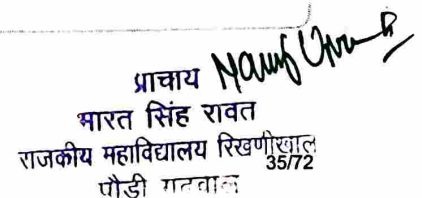 प्राचाय
भारत सिंह रावत
राजकीय महाविद्यालय रिखणीखाल
35/72
पौड़ी गढ़वाल